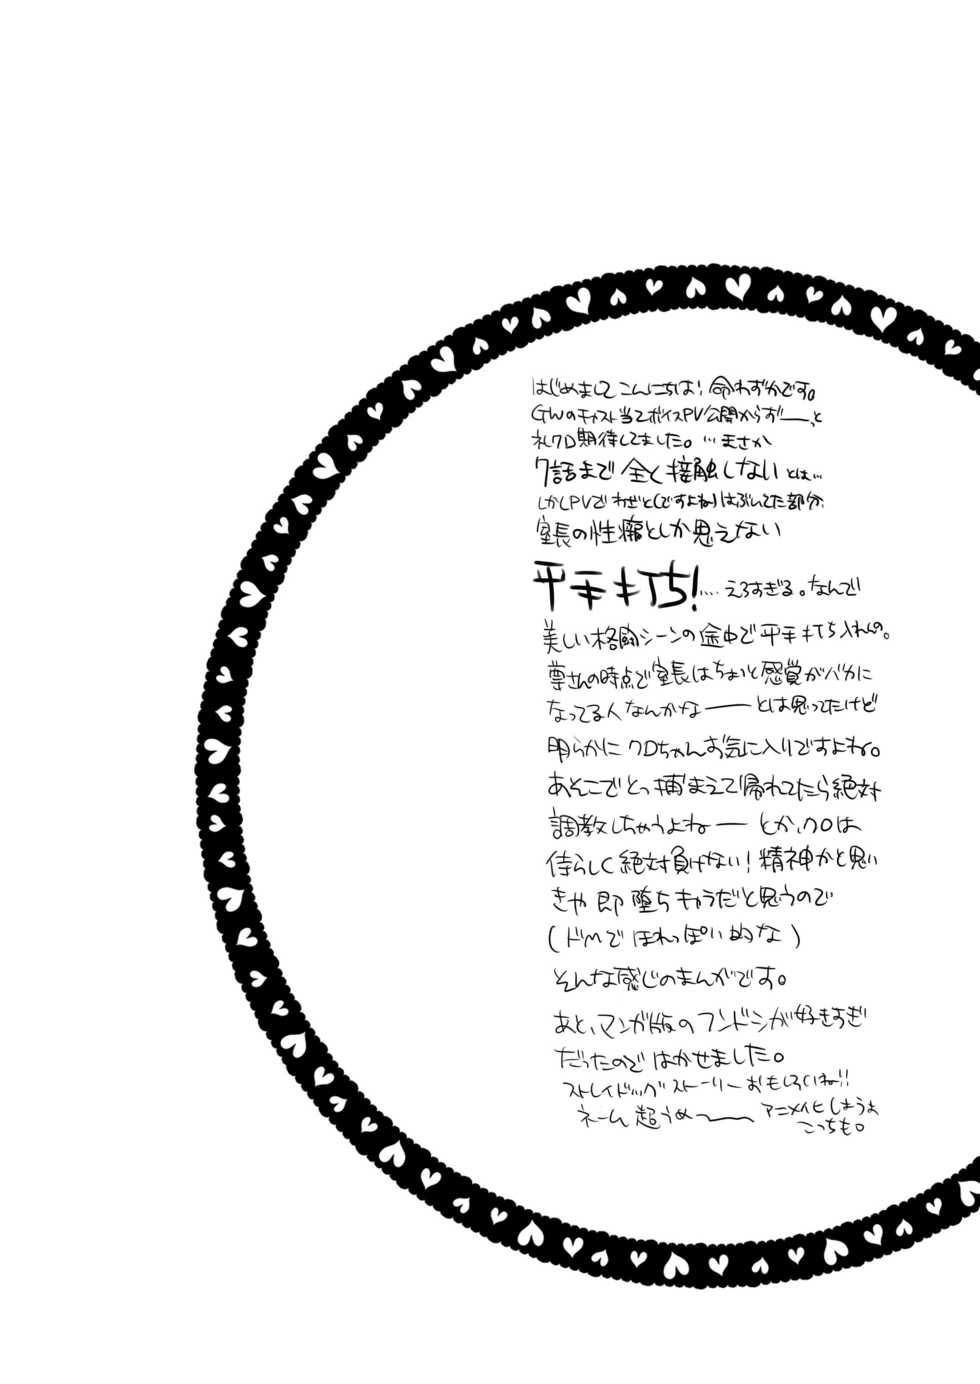 はじめましてこんにちは!命わずかです。
GWのキャスト当てボイスPV公開からず――っと
礼クロ期待してました。…まさか
7話まで全く接触しないとは…
しかしPVでわざと(ですよね)はぶいてた部分
室長の性癖としか思えない
平手打ち!…. えろすぎる。なんで
美しい格闘シーンの途中で平手打ち入れんの。
尊さんの時点で室長はちょいと感覚がバカに
なってる人なんかな――とは思ってたけど
明らかにクロちゃんお気に入りですよね。
あそこでとっ捕まえて帰れてたら絶対
調教しちゃうよね―― とか、クロは
侍らしく絶対負けない!精神かと思い
きや即堕ちキャラだと思うので
(ドMでほれっぽい的な)
そんな感じのまんがです。
あと、マンガ版のフンドシが好きすぎ
だったのではかせました。
ストレイドッグストーリーおもしろいね!!
ネーム超うめ〜〜 アニメイヒしようよ
こっちも。